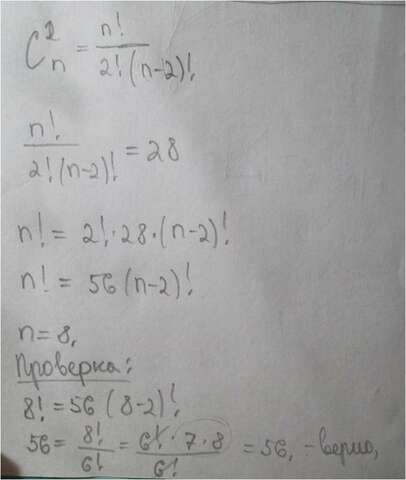 C²ₙ = n! / 2!(n-2)!
n! / 2!(n-2)! = 28
n! = 2!·28·(n-2)!
n! = 56(n-2)!
n=8,
Проверка:
8! = 56 (8-2)!
56 = 8! / 6! = 6!·7·8 / 6! = 56, - верно,